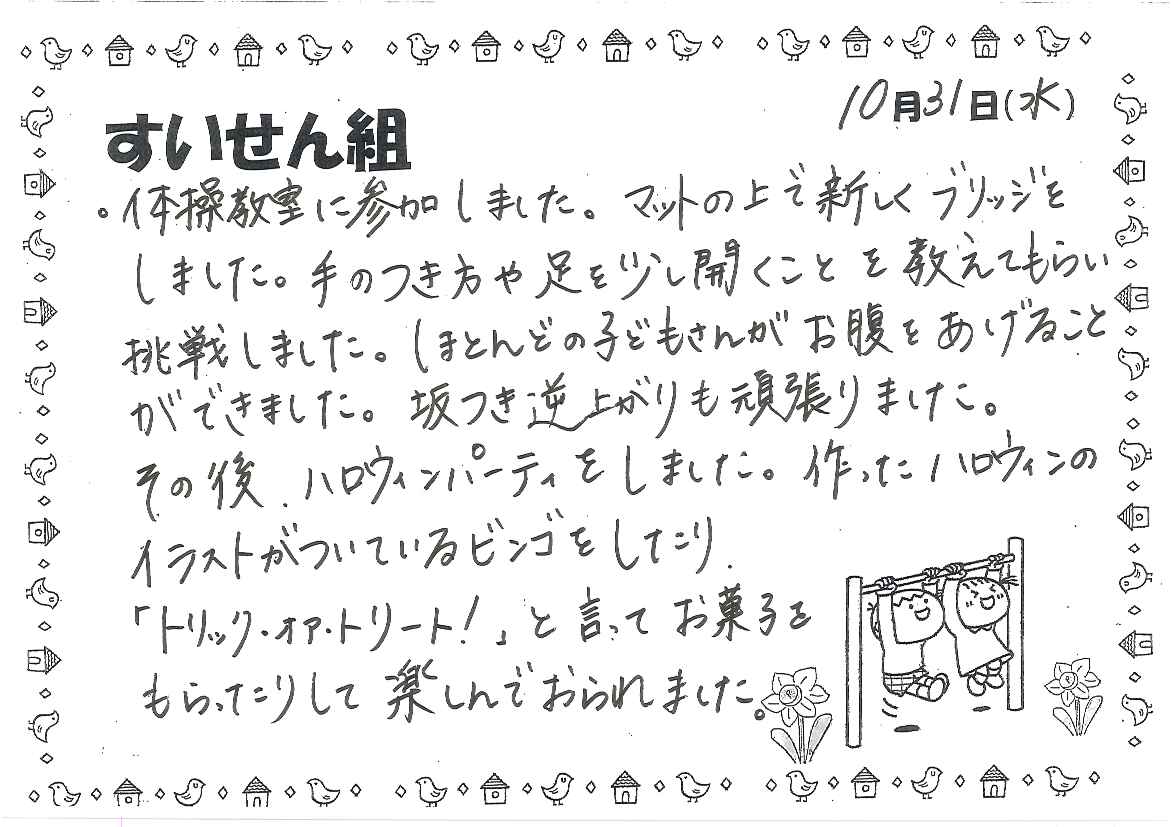 10月31日(水)
すいせん組
。体操教室に参加しました。マットの上で新しくブリッジを
しました。手のつき方や足を少し開くことを教えてもらい
挑戦しました。ほとんどの子どもさんがお腹をあげること
ができました。坂つき逆上がりも頑張りました。
その後、ハロウィンパーティをしました。作ったハロウィンの
イラストがついているビンゴをしたり、
「トリック・オア・トリート!」と言ってお菓子を
もらったりして楽しんでおられました。